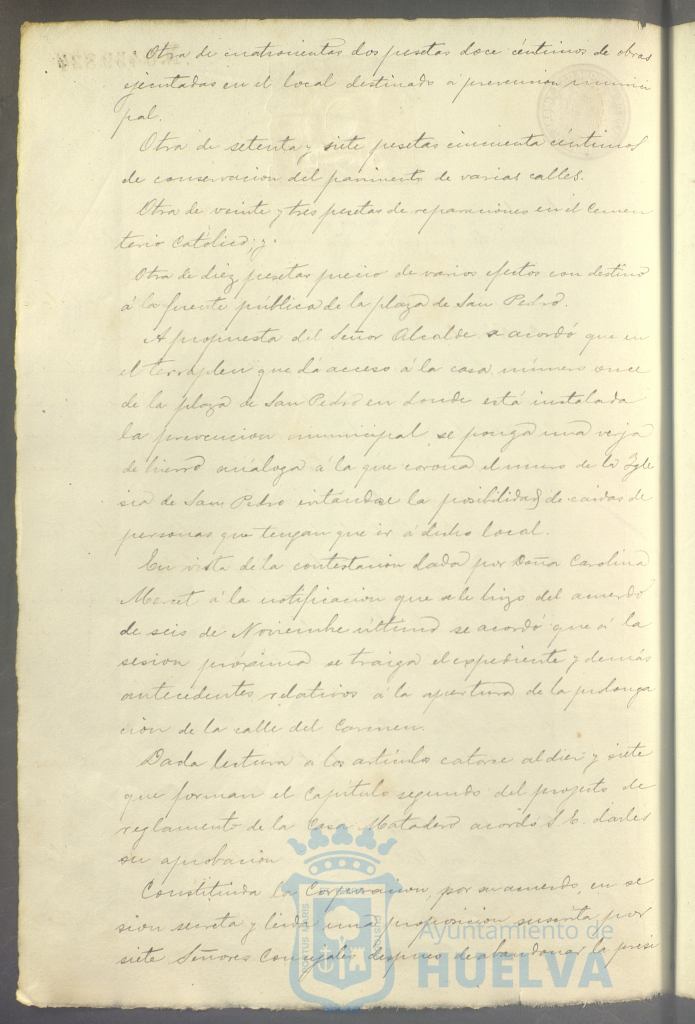 Otra de cuatrocientas dos pesetas doce céntimos de obras
ejecutadas en el local destinado á prevencion munici
pal.
Otra de setenta y siete pesetas cincuenta céntimos
de conservacion del pavimento de varias calles.
Otra de veinte y tres pesetas de reparaciones en el Cemen
terio Católico; y.
Otra de diez pesetas precio de varios efectos con destino
á la fuente pública de la plaza de San Pedro.
A propuesta del Señor Alcalde se acordó que en
el terraplen que dá acceso á la casa número once
de la plaza de San Pedro en donde está instalada
la prevencion municipal, se ponga una verja
de hierro análoga á la que corona el muro de la Igle
sia de San Pedro evitándose la posibilidad de caidas de
personas que tengan que ir á dicho local.
En vista de la contestacion dada por Doña Carolina
á la notificacion que se le hizo del acuerdo
de seis de Noviembre último se acordó que á la
sesion próxima se traiga el expediente y demás
antecedentes relativos á la apertura de la prolonga
cion de la calle del Carmen.
Dada lectura a los artículos catorce al diez y siete
que forman el Capítulo segundo del proyecto de
reglamento de la Casa Matadero acordó S. E. darles
su aprobacion
Constituida la Corporacion, por su acuerdo, en se
sion secreta y leida una proposicion suscrita por
siete Señores Concejales despues de abandonar la presi
Ayuntamiento de
HUELVA